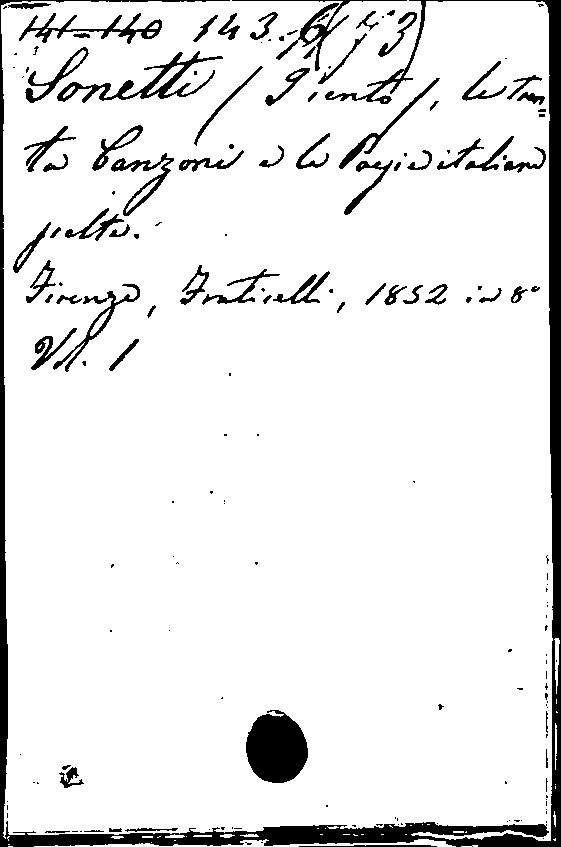 141-140 143.6(73)
Sonetti (Piento), le tren=
ta Canzoni e le Poesie italiane
scelte.
Firenze, Fraticelli, 1852 in 8°
Vol. 1